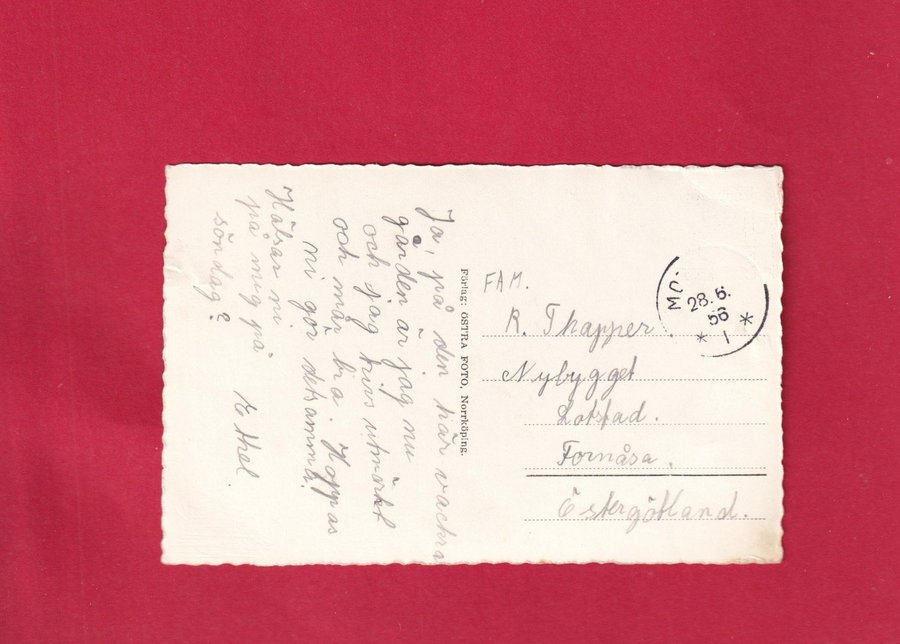 Ja, på den här vackra
gården är jag nu
och jag trivs utmärkt
och mår bra. Hoppas
ni gör detsamma.
Hälsar ni
på mig på
söndag?
Ethel.
Förlag: ÖSTRA FOTO, Norrköping.
FAM.
R. Thapper.
Nybygget
Lotstad.
Fornåsa.
Östergötland.
28.6.
56